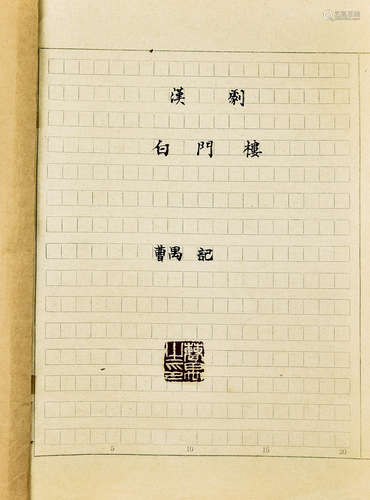 漢劇
白門樓
曹禺記
5 10 15 20